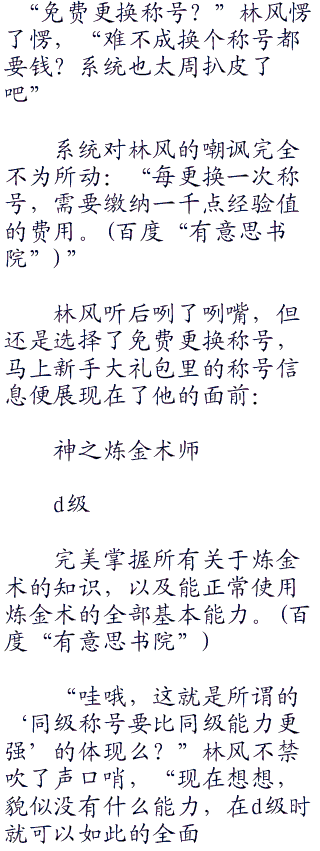 “免费更换称号？”林风愣
了愣，“难不成换个称号都
要钱？系统也太周扒皮了
吧”
系统对林风的嘲讽完全
不为所动：“每更换一次称
号，需要缴纳一千点经验值
的费用。(百度“有意思书
院”)”
林风听后咧了咧嘴，但
还是选择了免费更换称号，
马上新手大礼包里的称号信
息便展现在了他的面前：
神之炼金术师
d级
完美掌握所有关于炼金
术的知识，以及能正常使用
炼金术的全部基本能力。(百
度“有意思书院”)
“哇哦，这就是所谓的
‘同级称号要比同级能力更
强’的体现么？”林风不禁
吹了声口哨，“现在想想，
貌似没有什么能力，在d级时
就可以如此的全面